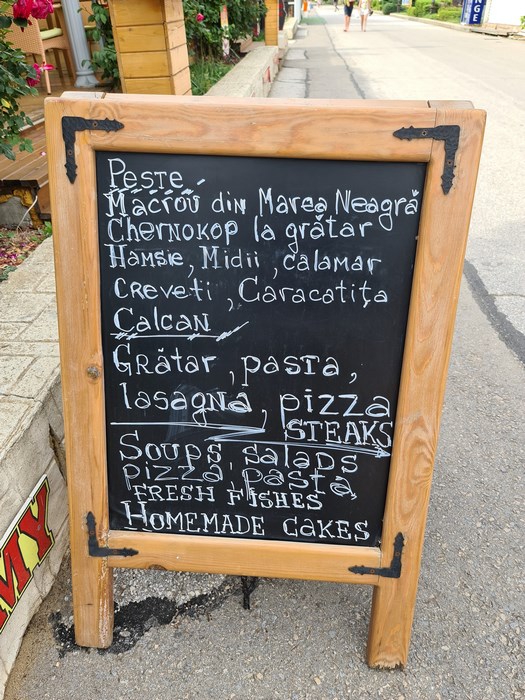 Peste
Macrou din Marea Neagră
Chernokop la grătar
Hamsie, Midii, calamar
Creveti, Caracatița
Calcan
Grătar, pasta,
lasagna, pizza
STEAKS
Soups, salads
pizza, pasta,
FRESH FISHES
HOMEMADE CAKES
MY